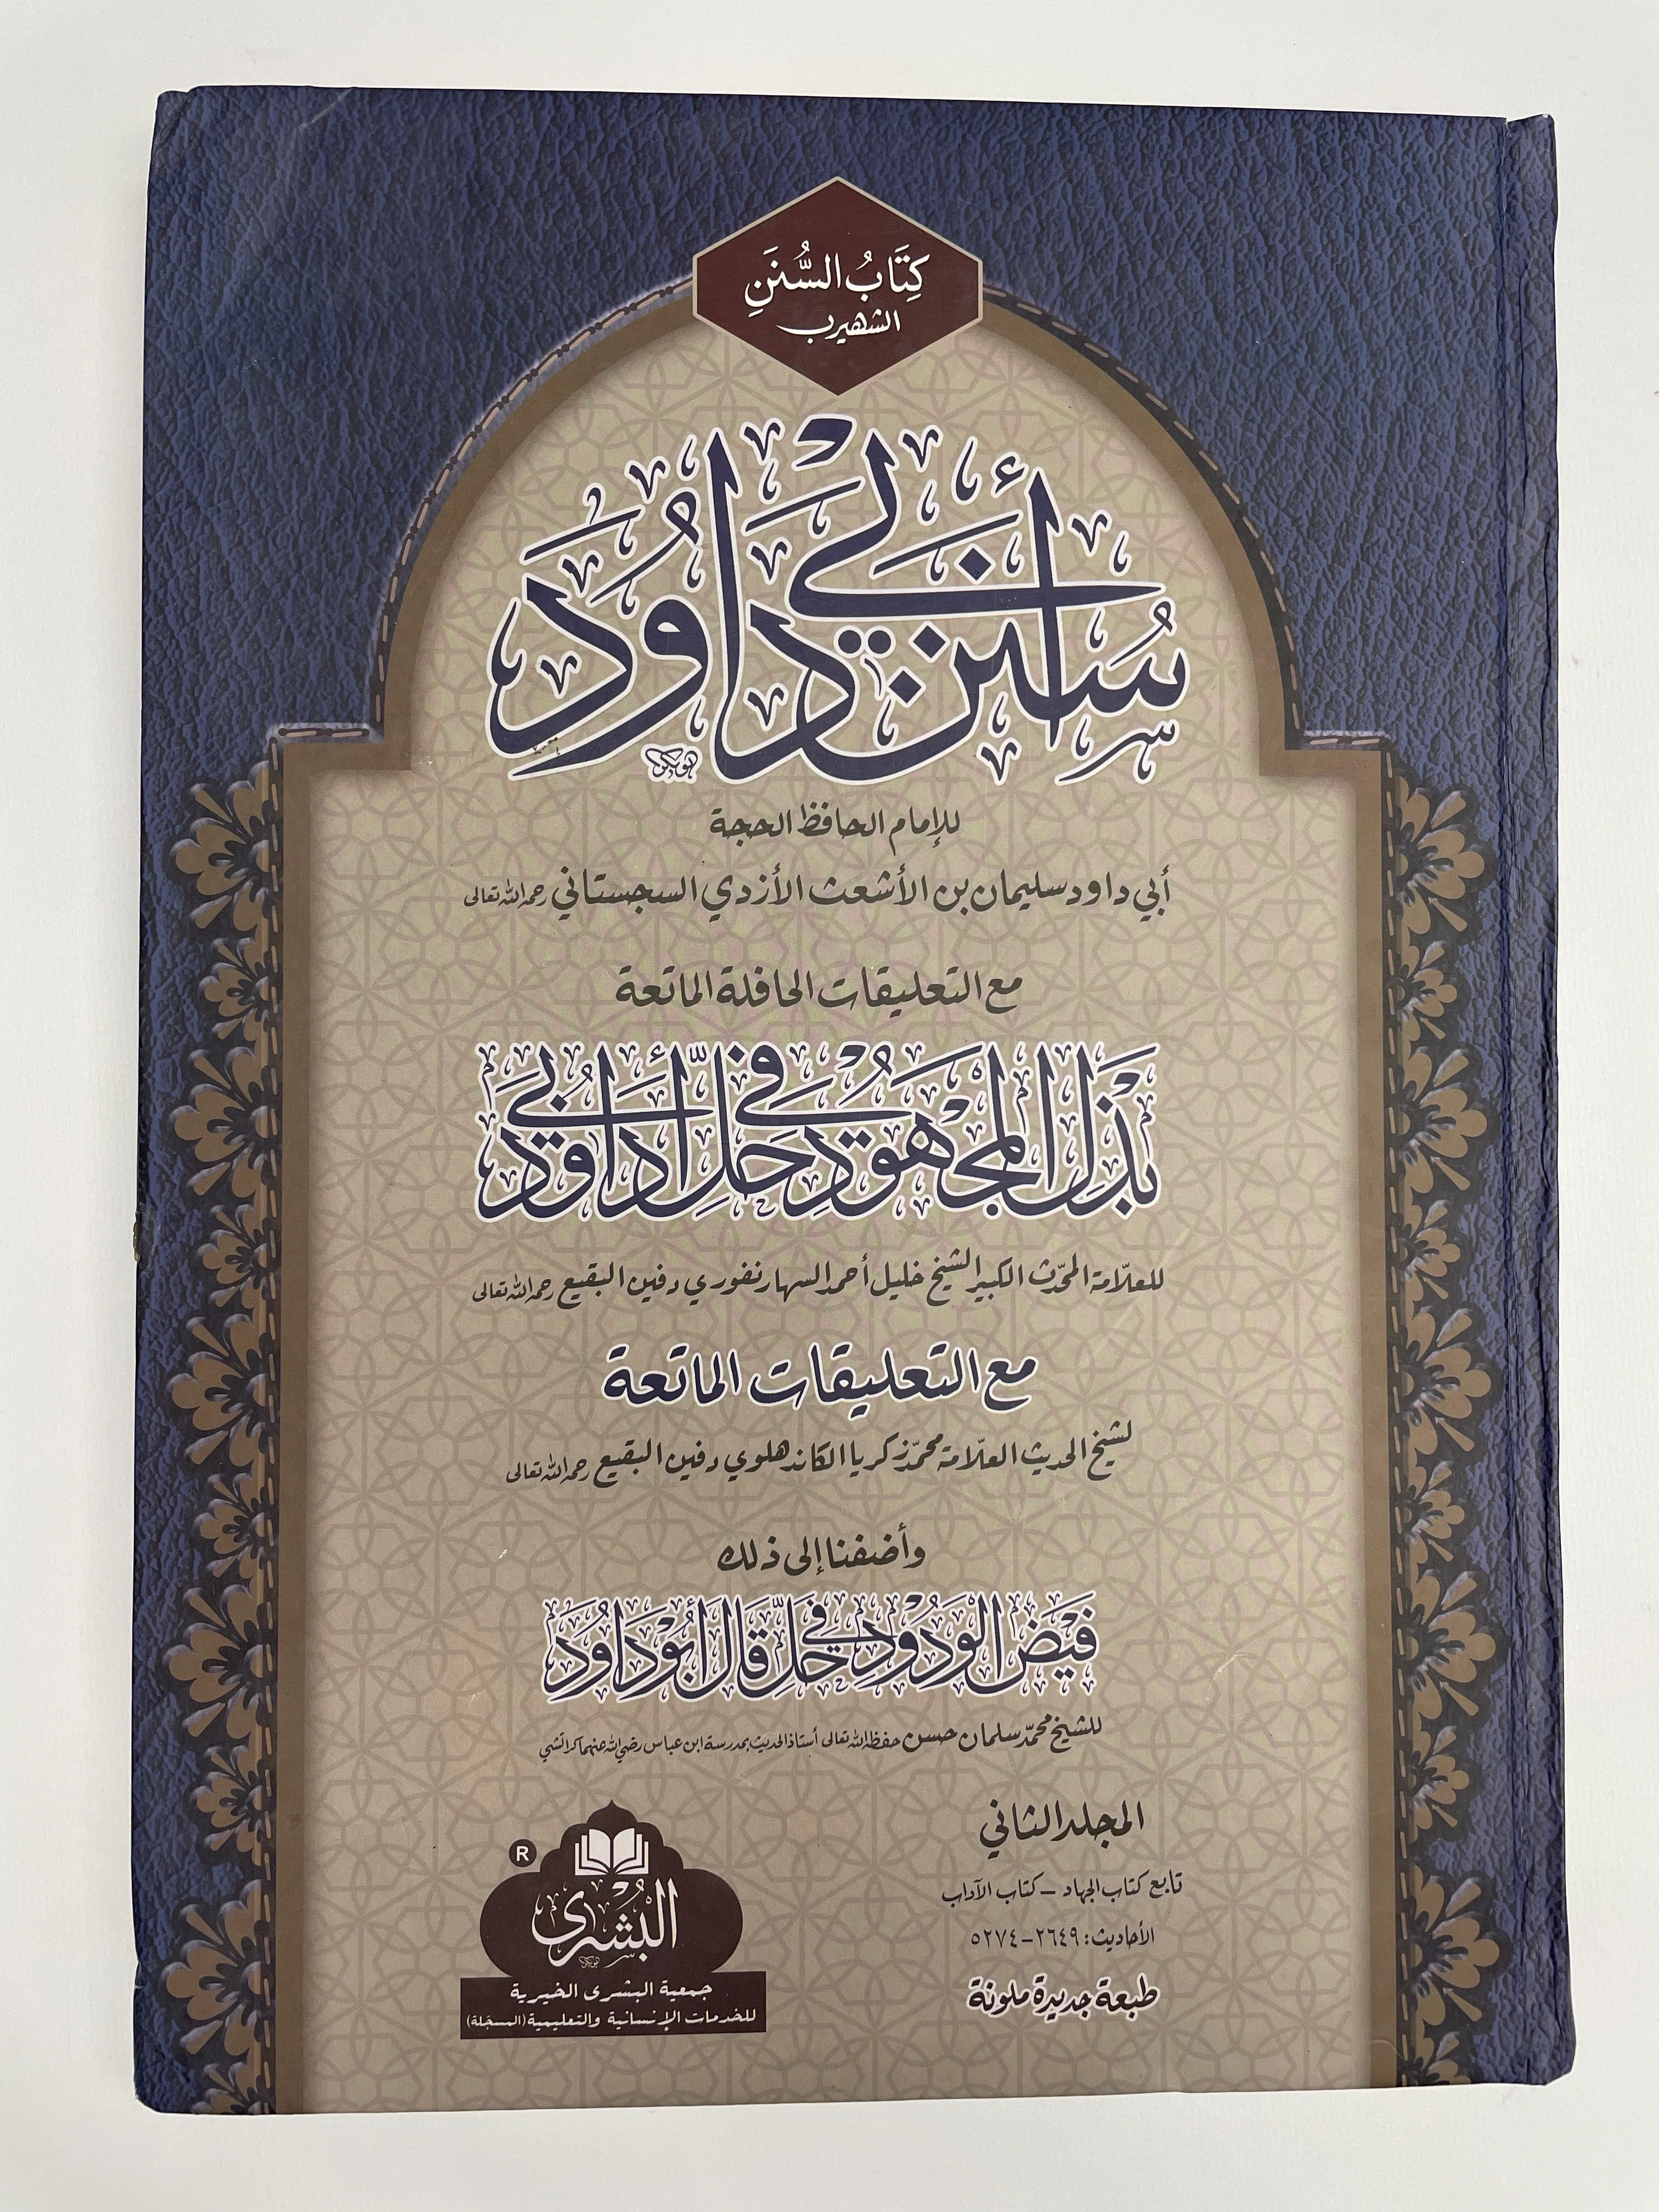 كِتَابُ السُّنَنِ
الشهير بـ
سُنَنْ أَبِي دَاوُدَ
للإمام الحافظ الحجة
أبي داود سليمان بن الأشعث الأزدي السجستاني رحمه الله تعالى
مع التعليقات الحافلة الماتعة
بَذْلُ الْمَجْهُوْدِ فِي حَلِّ أَبِي دَاوُدَ
للعلّامة المحدّث الكبير الشيخ خليل أحمد السهارنفوري دفين البقيع رحمه الله تعالى
مع التعليقات الماتعة
لشيخ الحديث العلّامة محمّد زكريا الكاندهلوي دفين البقيع رحمه الله تعالى
وأضفنا إلى ذلك
فَيْضُ الْوَدُوْدِ فِي حَلِّ قَالَ أَبُوْ دَاوُدَ
للشيخ محمّد سلمان حسن حفظه الله تعالى أستاذ الحديث بمدرسة ابن عباس رضي الله عنهما كراتشي
المجلد الثاني
تابع كتاب الجهاد – كتاب الآداب
الأحاديث: ٢٦٤٩-٥٢٧٤
طبعة جديدة ملونة
R
البُشْرى
جمعية البشرى الخيرية
للخدمات الإنسانية والتعليمية (المسجّلة)